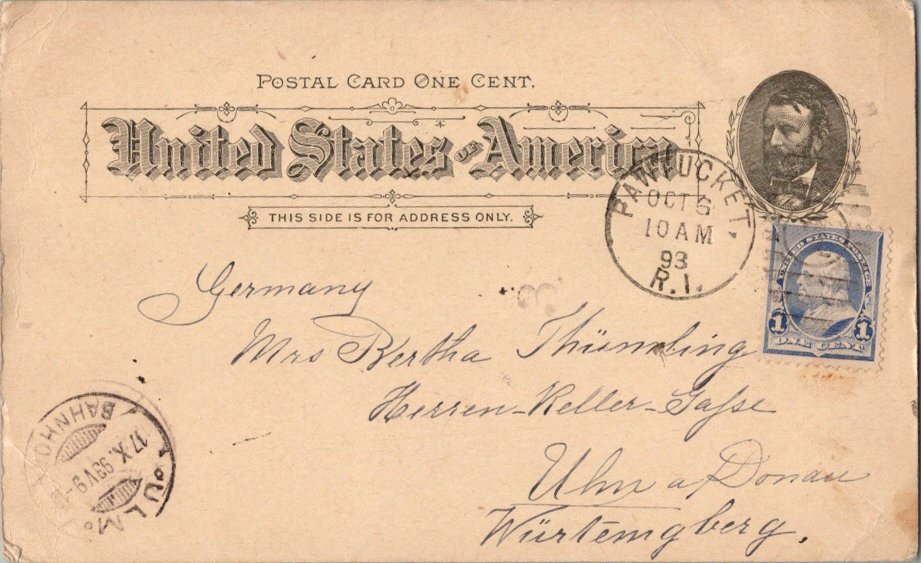 POSTAL CARD ONE CENT.
United States of America
THIS SIDE IS FOR ADDRESS ONLY.
PAWTUCKET,
OCT 6
10 AM
93
R.I.
UNITED STATES POSTAGE
1 1
ONE CENT
Germany
Mrs Bertha Thümling
Herren-Keller-Gaſse
Ulm a Donau
Würtemgberg.
ULM.
17 X. 93 V 9-
BAHNHO